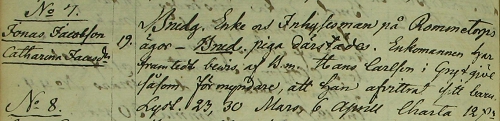 No 7.
Jonas Jacobson
Catharina Jacobsdr
19. Brudg. Enke och Inhysesman på Rommetorps
ägor – Brud. piga därstädes. Enkomannen har
framtedt bevis af B.m. Hans Carlsson i Gryt
såsom förmyndare, att han afvittrat sitt barn.
No 8.
Lyst. 23, 30 Mars, 6 April Charta 12